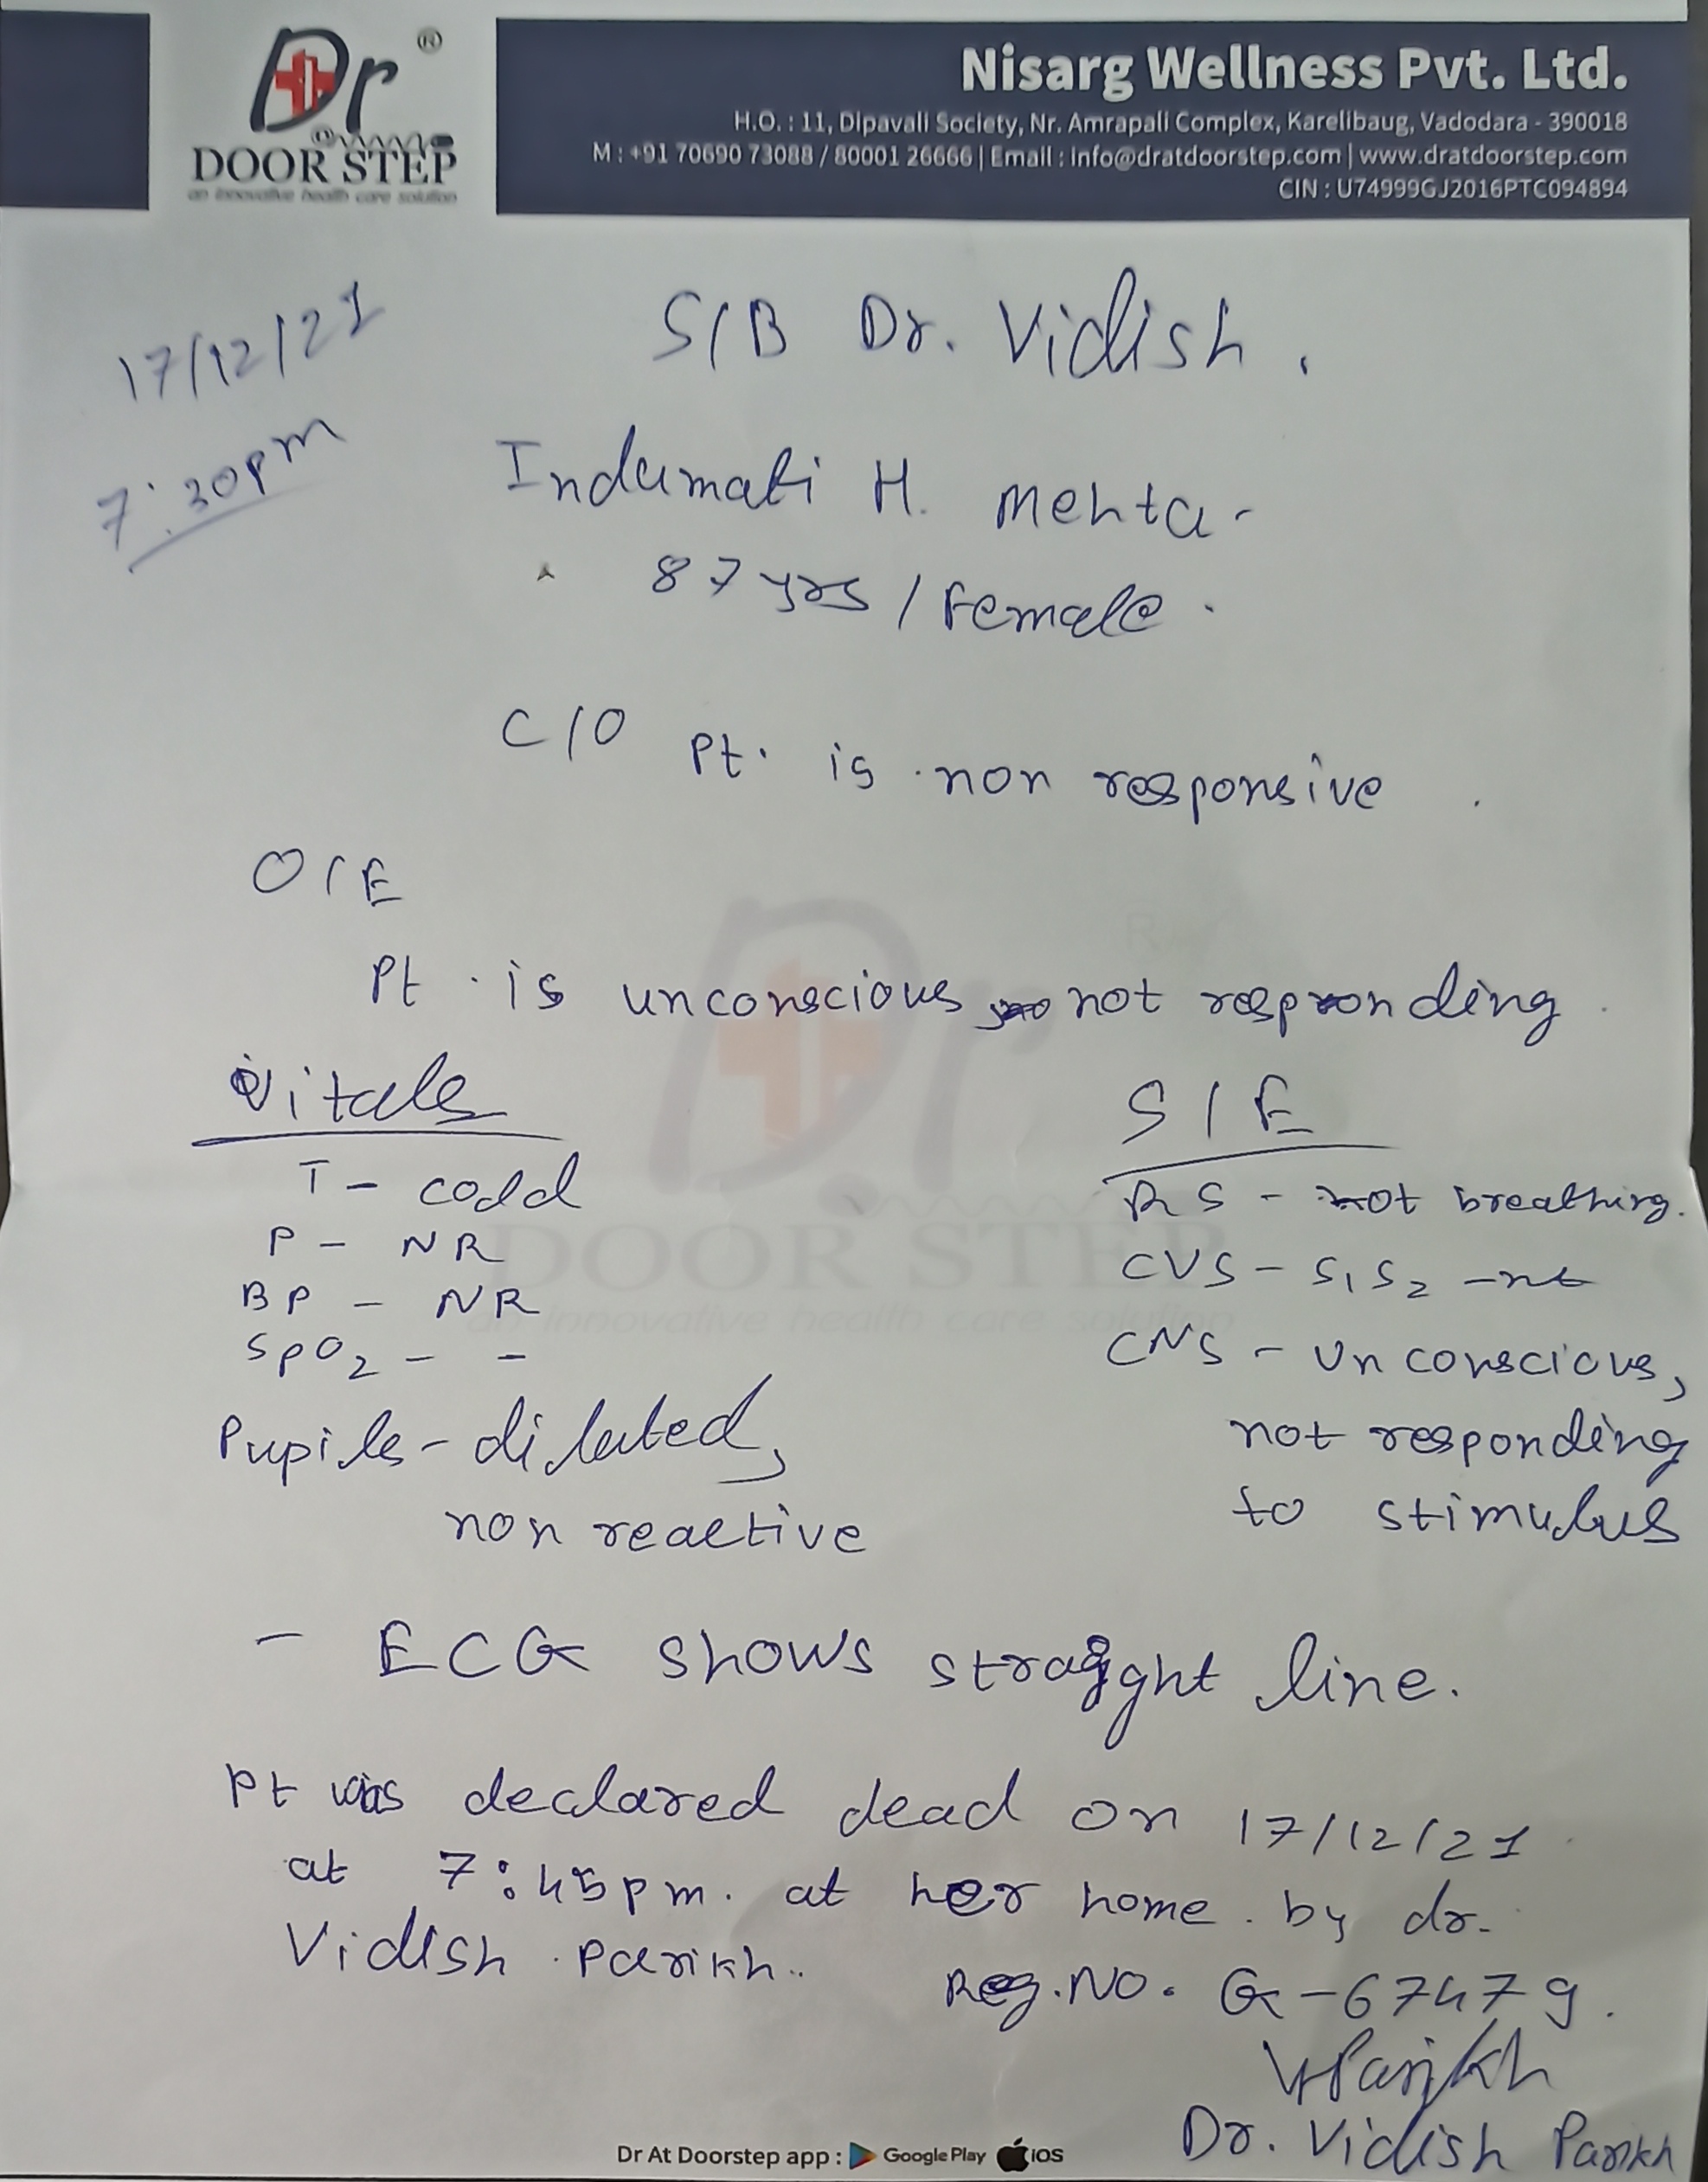 Dr ®
@
DOOR STEP
an innovative health care solution
Nisarg Wellness Pvt. Ltd.
H.O. : 11, Dipavali Society, Nr. Amrapali Complex, Karelibaug, Vadodara - 390018
M : +91 70690 73088 / 80001 26666 | Email : info@dratdoorstep.com | www.dratdoorstep.com
CIN : U74999GJ2016PTC094894
17/12/21
7:30pm
S/B Dr. Vidish.
Indumati H. Mehta-
87yrs / Female.
C/O Pt. is non responsive.
O/E
Pt. is unconscious not responding.
Vitals
T - codd
P - NR
BP - NR
SpO2 - -
Pupils - dilated,
non reactive
S/E
RS - not breathing.
CVS - S1S2 -nt
CNS - Unconscious,
not responding
to stimulus
- ECG shows straight line.
Pt was declared dead on 17/12/21
at 7:45pm. at her home. by dr.
Vidish Parikh..
Reg. No. G-67479.
VParikh
Dr. Vidish Parikh
Dr At Doorstep app : Google Play iOS
Dr
DOOR STEP
an innovative health care solution